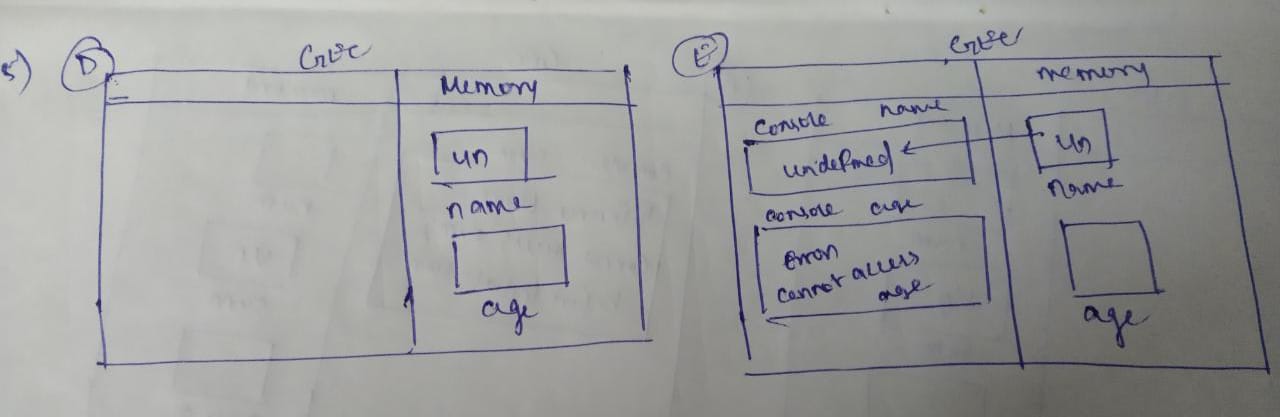 5)
D
GEC
Memory
un
name
age
E
GEC
memory
console name
undefined
un
name
console age
Error
cannot access
age
age